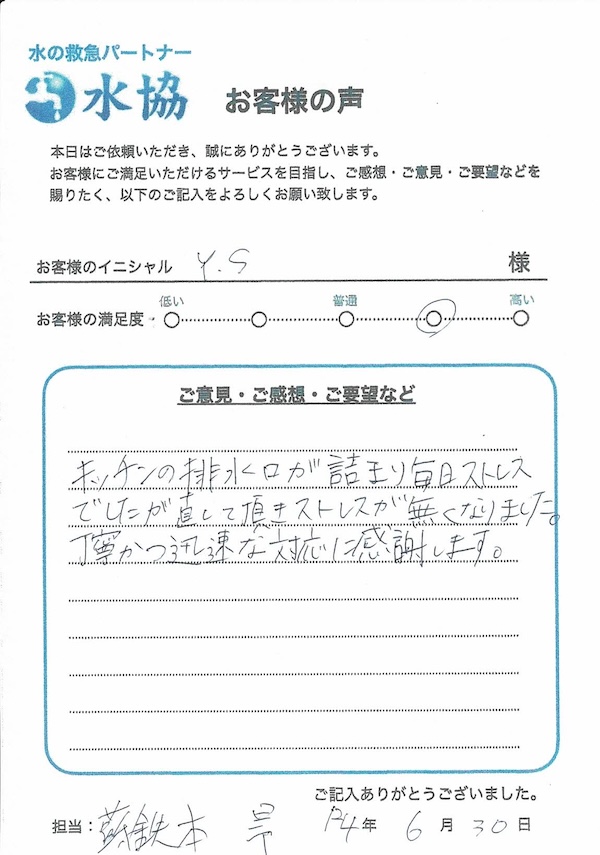 水の救急パートナー
水協 お客様の声
本日はご依頼いただき、誠にありがとうございます。
お客様にご満足いただけるサービスを目指し、ご感想・ご意見・ご要望などを
賜りたく、以下のご記入をよろしくお願い致します。
お客様のイニシャル Y.S 様
低い 普通 高い
お客様の満足度
ご意見・ご感想・ご要望など
キッチンの排水口が詰まり毎日ストレス
でしたが直して頂きストレスが無くなりました。
丁寧かつ迅速な対応に感謝します。
ご記入ありがとうございました。
担当: R4年 6月 30日